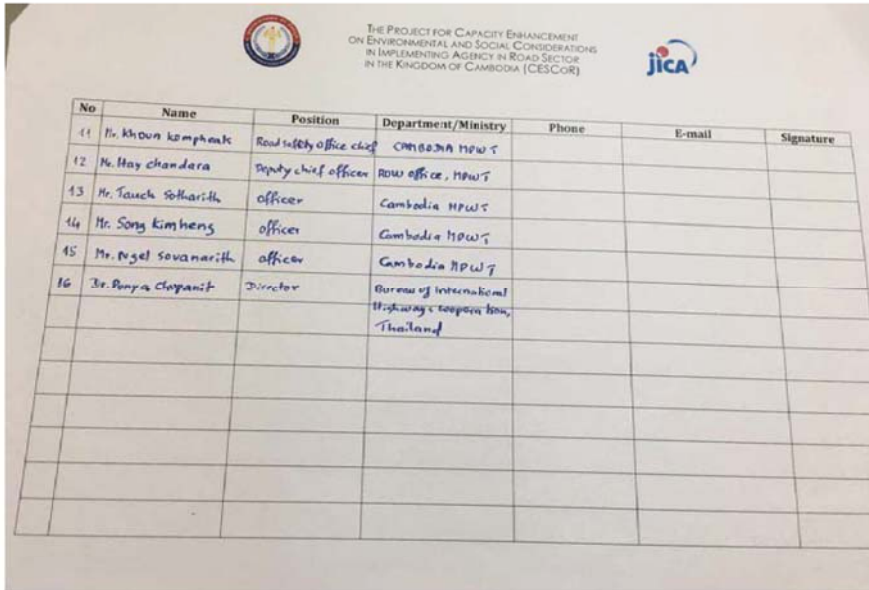 THE PROJECT FOR CAPACITY ENHANCEMENT
ON ENVIRONMENTAL AND SOCIAL CONSIDERATIONS
IN IMPLEMENTING AGENCY IN ROAD SECTOR
IN THE KINGDOM OF CAMBODIA (CESCOR)
jICA
No Name Position Department/Ministry Phone E-mail Signature
11 Mr. Khoun Kompheak Road safety office chief CAMBODIA MPWT
12 Mr. Hay chandara Deputy chief officer ROW office, MPWT
13 Mr. Tauch Sotharith officer Cambodia MPWT
14 Mr. Song Kimheng officer Cambodia MPWT
15 Mr. Sovanarith officer Cambodia MPWT
16 Dr. Director Bureau of International
Highways cooperation,
Thailand